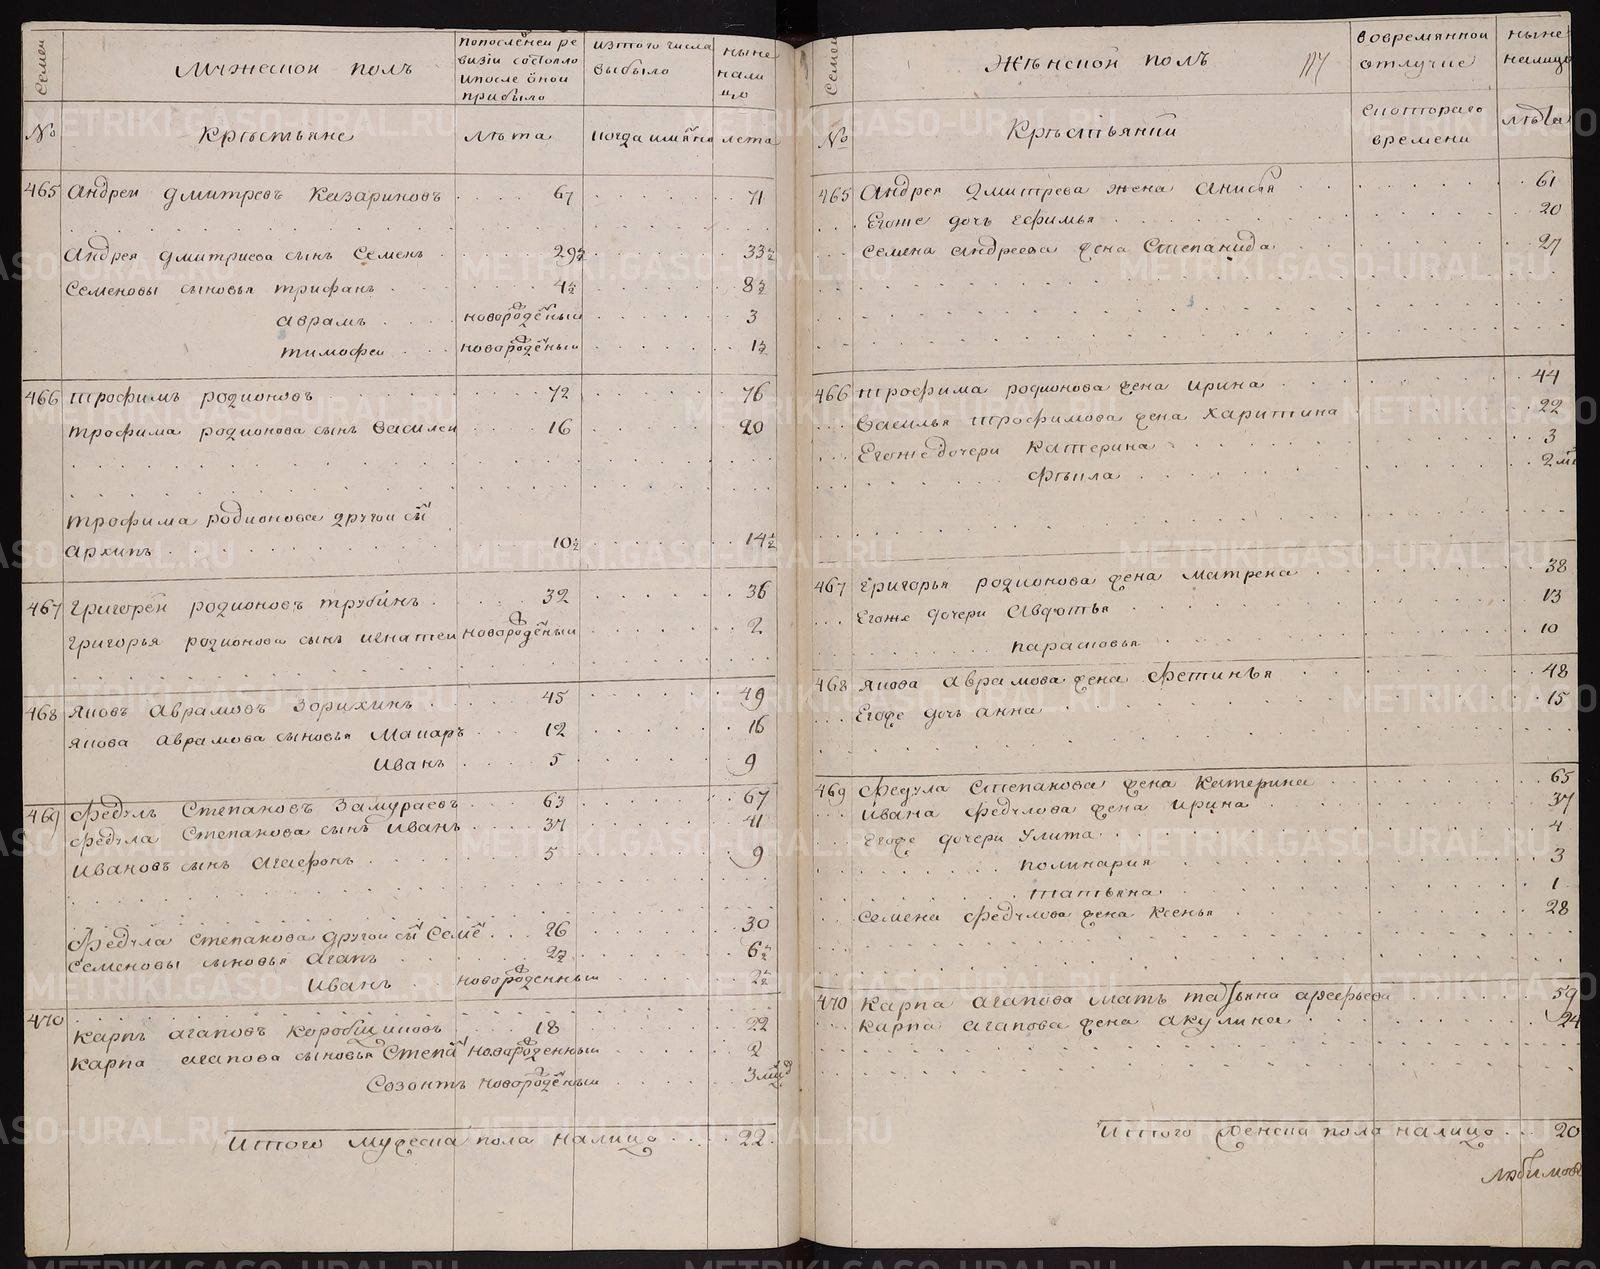 Семеи
Мужескои полъ
попослѣднеи ревизіи состояло ипосле онои прибыло
изтого числа выбыло
ныне налицо
№
Крѣстьяне
лѣта
когда имянно
лета
465 Андреи дмитревъ Казариновъ 67 71
Андрея дмитриева сынъ Семенъ 29½ 33½
Семеновы сыновья трифанъ 4½ 8½
аврамъ новорожденыи 3
тимофеи новорожденыи 1½
466 трофимъ родионовъ 72 76
трофима родионова сынъ василеи 16 20
трофима родионова другои сынъ
архипъ 10½ 14½
467 григореи родионовъ трубинъ 32 36
григорья родионова сынъ игнатеи новорожденыи 2
468 яковъ аврамовъ Зорихинъ 45 49
якова аврамова сыновья Макаръ 12 16
Иванъ 5 9
469 федулъ Степановъ Замураевъ 63 67
федула Степанова сынъ иванъ 37 41
ивановъ сынъ агафонъ 5 9
федула степанова другои сынъ Семенъ 26 30
семеновы сыновья агапъ 2½ 6½
иванъ новорожденныи 2½
470 карпъ агаповъ коробщиковъ 18 22
карпа агапова сыновья Степанъ новорожденныи 2
Созонтъ новорожденыи 3 мѣсяца
Итого мужеска пола налицо 22
Семеи
Женскои полъ
117
вовремяннои отлучке
ныне налицо
№
Крѣстьянкии
скотораго времени
лѣта
465 Андрея дмитрева жена анисья 61
Егоже дочь ефимья 20
семена андреева жена Степанида 27
466 трофима родионова жена ирина 44
василья трофимова жена харитина 22
Егоже дочери катерина 3
фѣкла 2 мѣ
467 григорья родионова жена матрена 38
Егоже дочери авдотья 13
парасковья 10
468 якова аврамова жена фетинья 48
Егоже дочь анна 15
469 федула Степанова жена катерина 65
ивана федулова жена ирина 37
Егоже дочери улита 4
полинария 3
татьяна 1
семена федулова жена ксенья 28
470 карпа агапова мать татьяна арефьева 59
карпа агапова жена акулина 24
Итого женска пола налицо 20
любимовъ
METRIKI.GASO-URAL.RU